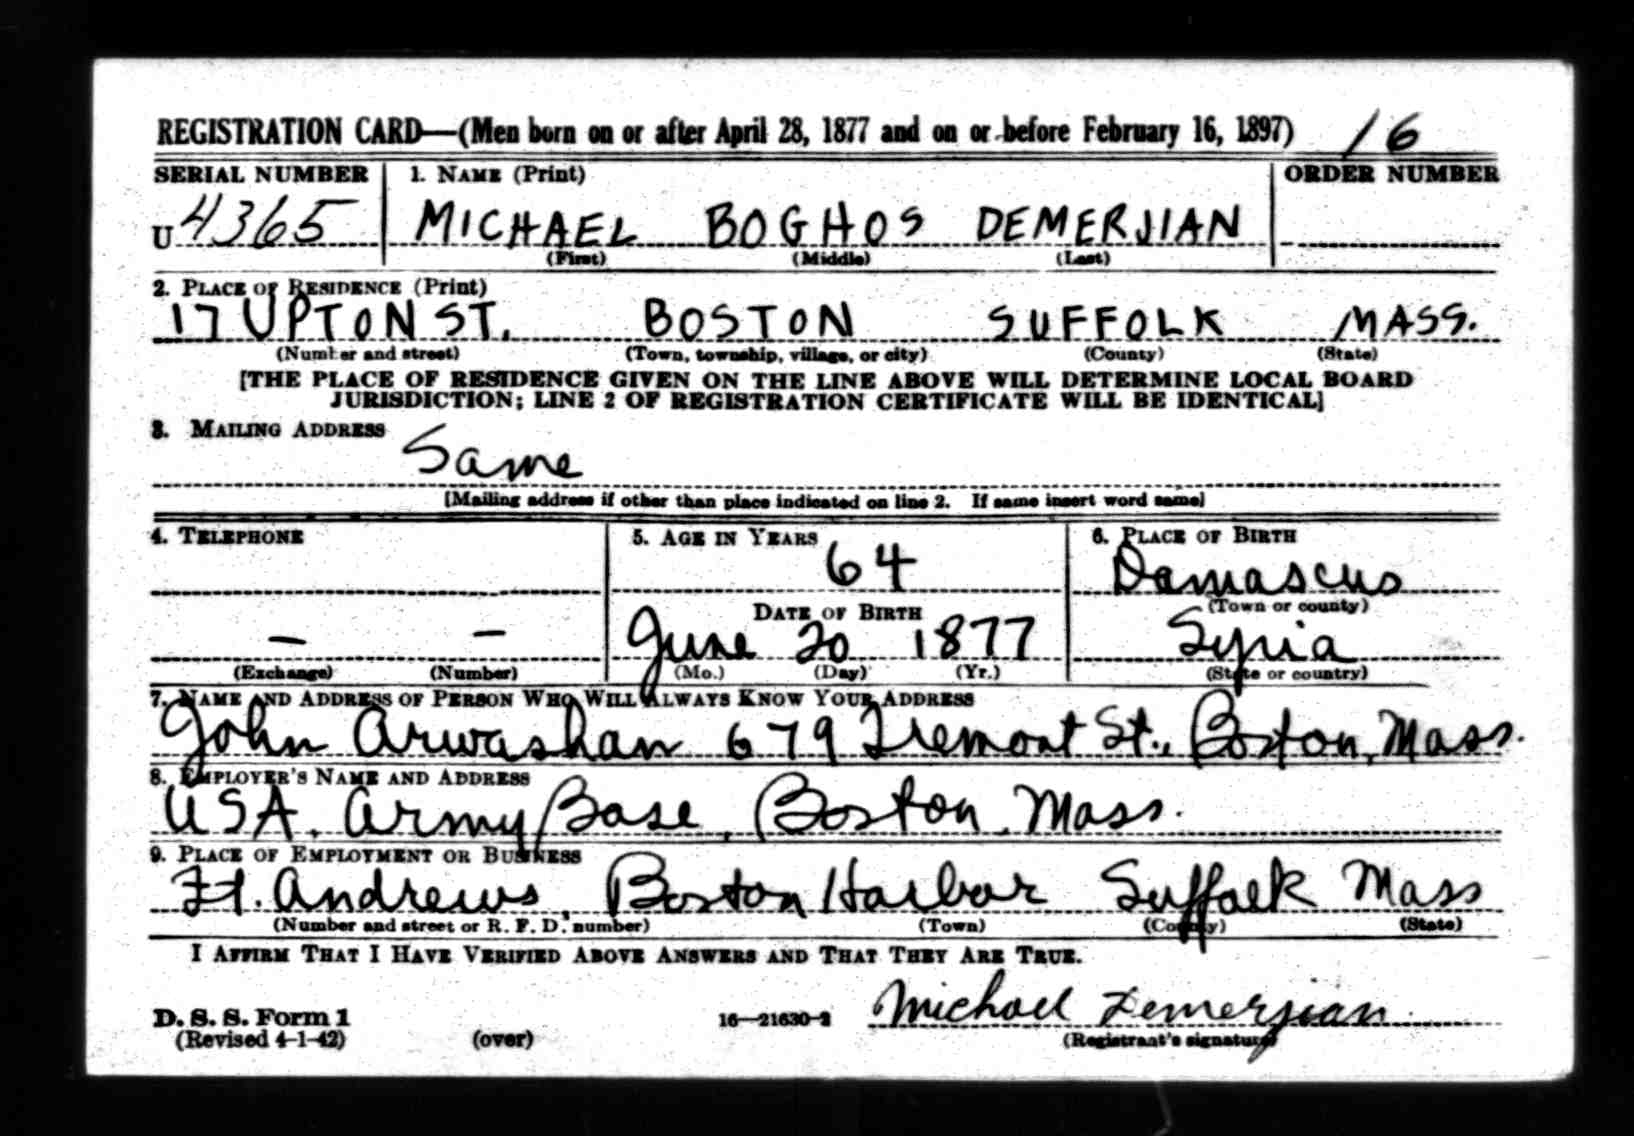 REGISTRATION CARD—(Men born on or after April 28, 1877 and on or before February 16, 1897) 16
SERIAL NUMBER 1. NAME (Print) ORDER NUMBER
U 4365 MICHAEL BOGHOS DEMERJIAN
(First) (Middle) (Last)
2. PLACE OF RESIDENCE (Print)
17 UPTON ST. BOSTON SUFFOLK MASS.
(Number and street) (Town, township, village, or city) (County) (State)
[THE PLACE OF RESIDENCE GIVEN ON THE LINE ABOVE WILL DETERMINE LOCAL BOARD
JURISDICTION; LINE 2 OF REGISTRATION CERTIFICATE WILL BE IDENTICAL]
3. MAILING ADDRESS
Same
[Mailing address if other than place indicated on line 2. If same insert word same]
4. TELEPHONE 5. AGE IN YEARS 6. PLACE OF BIRTH
64 Damascus
DATE OF BIRTH (Town or county)
— — June 20 1877 Syria
(Exchange) (Number) (Mo.) (Day) (Yr.) (State or country)
7. NAME AND ADDRESS OF PERSON WHO WILL ALWAYS KNOW YOUR ADDRESS
John Arwashan 679 Tremont St., Boston, Mass.
8. EMPLOYER'S NAME AND ADDRESS
USA, Army Base, Boston, Mass.
9. PLACE OF EMPLOYMENT OR BUSINESS
Ft. Andrews, Boston Harbor Suffolk Mass
(Number and street or R. F. D. number) (Town) (County) (State)
I AFFIRM THAT I HAVE VERIFIED ABOVE ANSWERS AND THAT THEY ARE TRUE.
Michael Demerjian
D. S. S. Form 1 16—21630-2
(Revised 4-1-42) (over) (Registrant's signature)